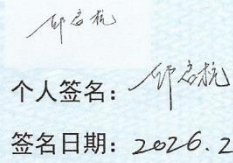 邱启杭
个人签名：邱启杭
签名日期：2026.2